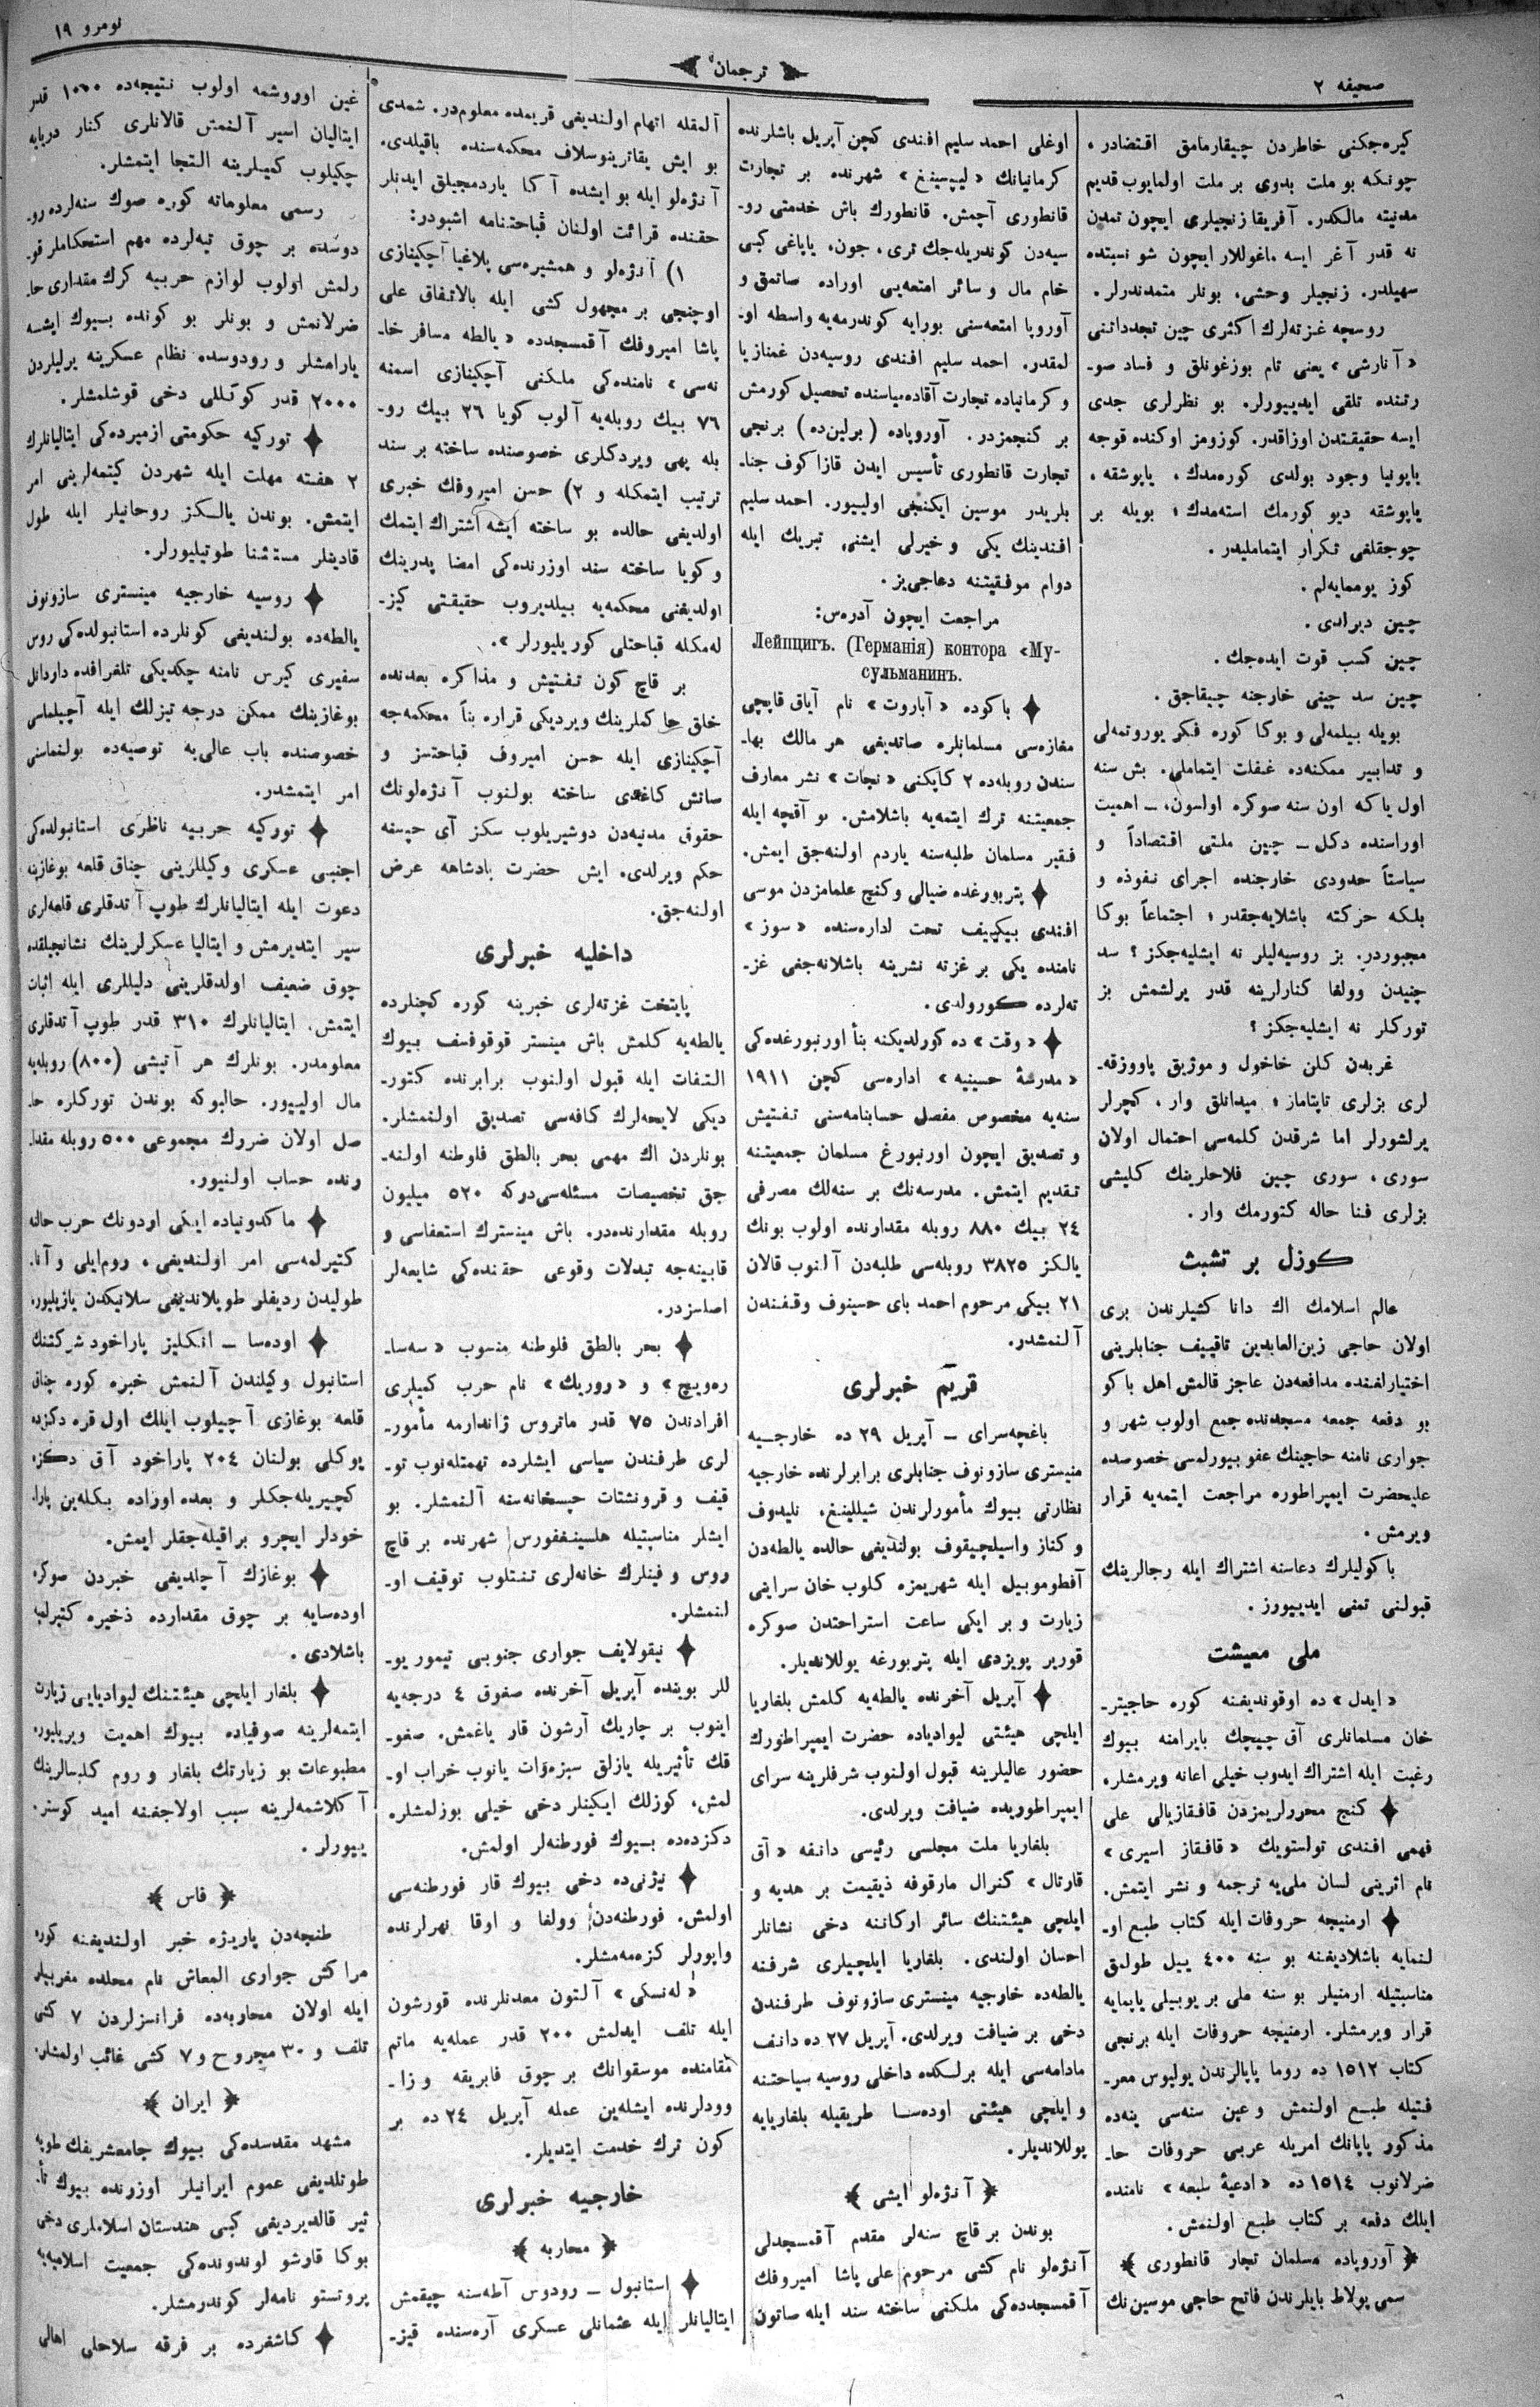 صحيفه ٢
ترجمان
نومرو ١٩
كيره‌جكنى خاطردن چيقارمامق اقتضادر،
چونكه بو ملت بدوى بر ملت اولمايوب قديم
مدنيته مالكدر. آفريقا زنجيلرى ايچون تمدن
نه قدر آغر ايسه ماغوللار ايچون شو نسبتده
سهيلدر. زنجيلر وحشى، بونلر متمدندرلر.
روسچه غزته‌لرك اكثرى چين تجدداتنى
«آنارشى» يعنى تام بوزغونلق و فساد صو-
رتنده تلقى ايدييورلر. بو نظرلرى جدى
ايسه حقيقتدن اوزاقدر. كوزومز اوكنده قوجه
ياپونيا وجود بولدى كوره‌مدك، ياپوشقه،
ياپوشقه ديو كورمك استه‌مدك؛ بويله بر
چوجقلغى تكرار ايتمامليدر.
كوز يوممايه‌لم.
چين ديرلدى.
چين كسب قوت ايده‌جك.
چين سد چينى خارجنه چيقاجق.
بويله بيلمه‌لى و بوكا كوره فكر يوروتمه‌لى
و تدابير ممكنه‌ده غفلت ايتماملى. بش سنه
اول ياكه اون سنه صوكره اولسون، ـ اهميت
اوراسنده دكل ـ چين ملتى اقتصاداً و
سياستاً حدودى خارجنده اجراى نفوذه و
بلكه حركته باشلايه‌جقدر؛ اجتماعاً بوكا
مجبوردر. بز روسيه‌ليلر نه ايشليه‌جكز؟ سد
چنيدن وولغا كنارلرينه قدر يرلشمش بز
توركلر نه ايشليه‌جكز؟
غربدن كلن خاخول و موژيق پاووزقه-
لرى بزلرى تاپتاماز؛ ميدانلق وار، كچرلر
يرلشورلر اما شرقدن كلمه‌سى احتمال اولان
سورى، سورى چين فلاحلرينك كليشى
بزلرى فنا حاله كتورمك وار.
كوزل بر تشبث
عالم اسلامك اك دانا كشيلرندن برى
اولان حاجى زين‌العابدين تاقييف جنابلرينى
اختيارلغنده مدافعه‌دن عاجز قالمش اهل باكو
بو دفعه جمعه مسجدنده جمع اولوب شهر و
جوارى نامنه حاجينك عفو بيورلمسى خصوصده
عليحضرت ايمپراطوره مراجعت ايتمه‌يه قرار
ويرمش.
باكوليلرك دعاسنه اشتراك ايله رجالرينك
قبولنى تمنى ايدييورز.
ملى معيشت
«ايدل» ده اوقونديغنه كوره حاجيتر-
خان مسلمانلرى آق چيچك بايرامنه بيوك
رغبت ايله اشتراك ايدوب خيلى اعانه ويرمشلر.
كنج محررلريمزدن قافقازيالى على
فهمى افندى تولستويك «قافقاز اسيرى»
نام اثرينى لسان ملى‌يه ترجمه و نشر ايتمش.
ارمنيجه حروفات ايله كتاب طبع او-
لنمايه باشلاديغنه بو سنه ٤٠٠ ييل طولمق
مناسبتيله ارمنيلر بو سنه ملى بر يوبيلى ياپمايه
قرار ويرمشلر. ارمنيجه حروفات ايله برنجى
كتاب ١٥١٢ ده روما پاپالرندن يوليوس معر-
فتيله طبع اولنمش و عين سنه‌سى ينه‌ده
مذكور پاپانك امريله عربى حروفات حا-
ضرلانوب ١٥١٤ ده «ادعيۀ سبعه» نامنده
ايلك دفعه بر كتاب طبع اولنمش.
آوروپاده مسلمان تجار قانطورى
سمى پولاط بايلرندن فاتح حاجى موسين نك
اوغلى احمد سليم افندى كچن آپريل باشلرنده
كرمانيانك «ليپسيغ» شهرنده بر تجارت
قانطورى آچمش. قانطورك باش خدمتى رو-
سيه‌دن كوندريله‌جك ترى، جون، ياپاغى كبى
خام مال و سائر امتعه‌يى اوراده صاتمق و
آوروپا امتعه‌سنى بورايه كوندرمه‌يه واسطه او-
لمقدر. احمد سليم افندى روسيه‌دن غمنازيا
و كرمانياده تجارت آقاده‌مياسنده تحصيل كورمش
بر كنجمزدر. آوروپاده (برلين‌ده) برنجى
تجارت قانطورى تأسيس ايدن قازاكوف جنا-
بلريدر موسين ايكنجى اولييور. احمد سليم
افندينك يكى و خيرلى ايشنى تبريك ايله
دوام موفقيتنه دعاجى‌يز.
مراجعت ايچون آدره‌س:
Лейпцигъ. (Германія) контора «Му-
сульманинъ.
باكوده «آباروت» نام آياق قاپچى
مغازه‌سى مسلمانلره صاتديغى هر مالك بها-
سندن روبله‌ده ٢ كاپكنى «نجات» نشر معارف
جمعيتنه ترك ايتمه‌يه باشلامش. بو آقچه ايله
فقير مسلمان طلبه‌سنه ياردم اولنه‌جق ايمش.
پتربورغده ضيالى و كنج علمامزدن موسى
افندى بيكييف تحت اداره‌سنده «سوز»
نامنده يكى بر غزته نشرينه باشلانه‌جغى غز-
ته‌لرده كورولدى.
«وقت» ده كورلديكنه بنأ اورنبورغده‌كى
«مدرسۀ حسينيه» اداره‌سى كچن ١٩١١
سنه‌يه مخصوص مفصل حسابنامه‌سنى تفتيش
و تصديق ايچون اورنبورغ مسلمان جمعيتنه
تقديم ايتمش. مدرسه‌نك بر سنه‌لك مصرفى
٢٤ بيك ٨٨٠ روبله مقدارنده اولوب بونك
يالكز ٣٨٢٥ روبله‌سى طلبه‌دن آلنوب قالان
٢١ بيكى مرحوم احمد باى حسينوف وقفندن
آلنمشدر.
قريم خبرلرى
باغچه‌سراى ـ آپريل ٢٩ ده خارجيه
منيسترى سازونوف جنابلرى برابرلرنده خارجيه
نظارتى بيوك مأمورلرندن شيللينغ، نليدوف
و كناز واسيلچيقوف بولنديغى حالده يالطه‌دن
آفطوموبيل ايله شهريمزه كلوب خان سراينى
زيارت و بر ايكى ساعت استراحتدن صوكره
قورير پويزدى ايله پتربورغه يوللانديلر.
آپريل آخرنده يالطه‌يه كلمش بلغاريا
ايلچى هيئتى ليواديا‌ده حضرت ايمپراطورك
حضور عاليلرينه قبول اولنوب شرفلرينه سراى
ايمپراطوريده ضيافت ويرلدى.
بلغاريا ملت مجلسى رئيسى دانفه «آق
قارتال» كنرال مارقوفه ذيقيمت بر هديه و
ايلچى هيئتنك سائر اركاننه دخى نشانلر
احسان اولندى. بلغاريا ايلچيلرى شرفنه
يالطه‌ده خارجيه مينسترى سازونوف طرفندن
دخى بر ضيافت ويرلدى. آپريل ٢٧ ده دانف
مادامه‌سى ايله برلكده داخلى روسيه سياحتنه
و ايلچى هيئتى اوده‌سا طريقيله بلغاريايه
يوللانديلر.
آنژه‌لو ايشى
بوندن بر قاچ سنه‌لر مقدم آقمسجدلى
آنژه‌لو نام كشى مرحوم على پاشا اميروفك
آقمسجدده‌كى ملكنى ساخته سند ايله صاتون
آلمقله اتهام اولنديغى قريمده معلومدر. شمدى
بو ايش يقاترينوسلاف محكمه‌سنده باقيلدى.
آنژه‌لو ايله بو ايشده آكا ياردمجيلق ايدنلر
حقنده قرائت اولنان قباحتنامه اشبودر:
١) آنژه‌لو و همشيره‌سى پلاغيا آچكينازى
اوچنجى بر مجهول كشى ايله بالاتفاق على
پاشا اميروفك آقمسجدده «يالطه مسافر خا-
نه‌سى» نامنده‌كى ملكنى آچكينازى اسمنه
٧٦ بيك روبله‌يه آلوب كويا ٢٦ بيك رو-
بله پهى ويردكلرى خصوصنده ساخته بر سند
ترتيب ايتمكله و ٢) حسن اميروفك خبرى
اولديغى حالده بو ساخته ايشه اشتراك ايتمك
و كويا ساخته سند اوزرنده‌كى امضا پدرينك
اولديغنى محكمه‌يه بيلديروب حقيقتى كيز-
له‌مكله قباحتلى كوريليورلر».
بر قاچ كون تفتيش و مذاكره بعدنده
خلق حاكملرينك ويرديكى قراره بناً محكمه‌جه
آچكينازى ايله حسن اميروف قباحتسز و
صاتش كاغدى ساخته بولنوب آنژه‌لونك
حقوق مدنيه‌دن دوشيريلوب سكز آى حپسنه
حكم ويرلدى. ايش حضرت پادشاهه عرض
اولنه‌جق.
داخليه خبرلرى
پايتخت غزته‌لرى خبرينه كوره كچنلرده
يالطه‌يه كلمش باش مينستر قوقوفسف بيوك
التفات ايله قبول اولنوب برابرنده كتور-
ديكى لايحه‌لرك كافه‌سى تصديق اولنمشلر.
بونلردن اك مهمى بحر بالطق فلوطنه اولنه-
جق تخصيصات مسئله‌سى‌دركه ٥٢٠ ميليون
روبله مقدارنده‌در. باش مينسترك استعفاسى و
قابينه‌جه تبدلات وقوعى حقنده‌كى شايعه‌لر
اصلسزدر.
بحر بالطق فلوطنه منسوب «سه‌سا-
ره‌ويچ» و «روريك» نام حرب كميلرى
افرادندن ٧٥ قدر ماتروس ژاندارمه مأمور-
لرى طرفندن سياسى ايشلرده تهمتله‌نوب تو-
قيف و قرونشتات حپسخانه‌سنه آلنمشلر. بو
ايشلر مناسبتيله هلسينغفورس شهرنده بر قاچ
روس و فينلرك خانه‌لرى تفتتلوب توقيف او-
لنمشلر.
نيقولايف جوارى جنوبى تيمور يو-
للر بوينده آپريل آخرنده صغوق ٤ درجه‌يه
اينوب بر چاريك آرشون قار ياغمش. صغو-
قك تأثيريله يازلق سبزه‌وات يانوب خراب او-
لمش، كوزلك ايكينلر دخى خيلى بوزلمشلر.
دكزده‌ده بيوك فورطنه‌لر اولمش.
نيژنى‌ده دخى بيوك قار فورطنه‌سى
اولمش. فورطنه‌دن وولغا و اوقا نهرلرنده
واپورلر كزه‌مه‌مشلر.
«له‌نسكى» آلتون معدنلرنده قورشون
ايله تلف ايدلمش ٢٠٠ قدر عمله‌يه ماتم
مقامنده موسقوانك بر چوق فابريقه و زا-
وودلرنده ايشله‌ين عمله آپريل ٢٤ ده بر
كون ترك خدمت ايتديلر.
خارجيه خبرلرى
محاربه
استانبول ـ رودوس آطه‌سنه چيقمش
ايتاليانلر ايله عثمانلى عسكرى آره‌سنده قيز-
غين اوروشمه اولوب نتيجه‌ده ١٠٠٠ قدر
ايتاليان اسير آلنمش قالانلرى كنار دريايه
چكيلوب كميلرينه التجا ايتمشلر.
رسمى معلوماته كوره صوك سنه‌لرده رو-
دوسده بر چوق تپه‌لرده مهم استحكاملر قو-
رلمش اولوب لوازم حربيه كرك مقدارى حا-
ضرلانمش و بونلر بو كونده بيوك ايشه
يارامشلر و رودوسده نظام عسكرينه يرليلردن
٢٠٠٠ قدر كوكللى دخى قوشلمشلر.
توركيه حكومتى ازميرده‌كى ايتاليانلرك
٢ هفته مهلت ايله شهردن كيتمه‌لرينى امر
ايتمش. بوندن يالكز روحانيلر ايله طول
قادينلر مستثنا طوتيليورلر.
روسيه خارجيه مينسترى سازونوف
يالطه‌ده بولنديغى كونلرده استانبولده‌كى روس
سفيرى كيرس نامنه چكديكى تلغرافده داردانل
بوغازينك ممكن درجه تيزلك ايله آچيلماسى
خصوصنده باب عالى‌يه توصيه‌ده بولنماسنى
امر ايتمشدر.
توركيه حربيه ناظرى استانبولده‌كى
اجنبى عسكرى وكيللرينى چناق قلعه بوغازينه
دعوت ايله ايتاليانلرك طوپ آتدقلرى قلعه‌لرى
سير ايتديرمش و ايتاليا عسكرلرينك نشانجيلقده
چوق ضعيف اولدقلرينى دليللرى ايله اثبات
ايتمش. ايتاليانلرك ٣١٠ قدر طوپ آتدقلرى
معلومدر. بونلرك هر آتيشى (٨٠٠) روبله‌يه
مال اولييور. حالبوكه بوندن توركلره حا-
صل اولان ضررك مجموعى ٥٠٠ روبله مقدا-
رنده حساب اولنيور.
ماكدونياده ايكى اوردونك حرب حالنه
كتيرلمه‌سى امر اولنديغى، روم‌ايلى و آنا-
طوليدن رديفلر طوپلانديغى سلانيكدن يازيليور.
اوده‌سا ـ انكليز پاراخود شركتنك
استانبول وكيلندن آلنمش خبره كوره چناق
قلعه بوغازى آچيلوب ايلك اول قره دكزده
يوكلى بولنان ٢٠٤ پاراخود آق دكزه
كچيريله‌جكلر و بعده اوراده بكله‌ين پارا-
خودلر ايچرو براقيله‌جقلر ايمش.
بوغازك آچلديغى خبردن صوكره
اوده‌سايه بر چوق مقدارده ذخيره كتيرلمه
باشلادى.
بلغار ايلچى هيئتنك ليواديايى زيارت
ايتمه‌لرينه صوفياده بيوك اهميت ويريليور.
مطبوعات بو زيارتك بلغار و روم كليسالرينك
آكلاشمه‌لرينه سبب اولاجغنه اميد كوستر-
ييورلر.
فاس
طنجه‌دن پاريژه خبر اولنديغنه كوره
مراكش جوارى المعاش نام محلده مغربيلر
ايله اولان محاربه‌ده فرانسزلردن ٧ كشى
تلف و ٣٠ مجروح و ٧ كشى غائب اولمشلر.
ايران
مشهد مقدسده‌كى بيوك جامعشريفك طوپه
طوتلديغى عموم ايرانيلر اوزرنده بيوك تأ-
ثير قالديرديغى كبى هندستان اسلاملرى دخى
بوكا قارشو لوندونده‌كى جمعيت اسلاميه‌يه
پروتستو نامه‌لر كوندرمشلر.
كاشغرده بر فرقه سلاحلى اهالى